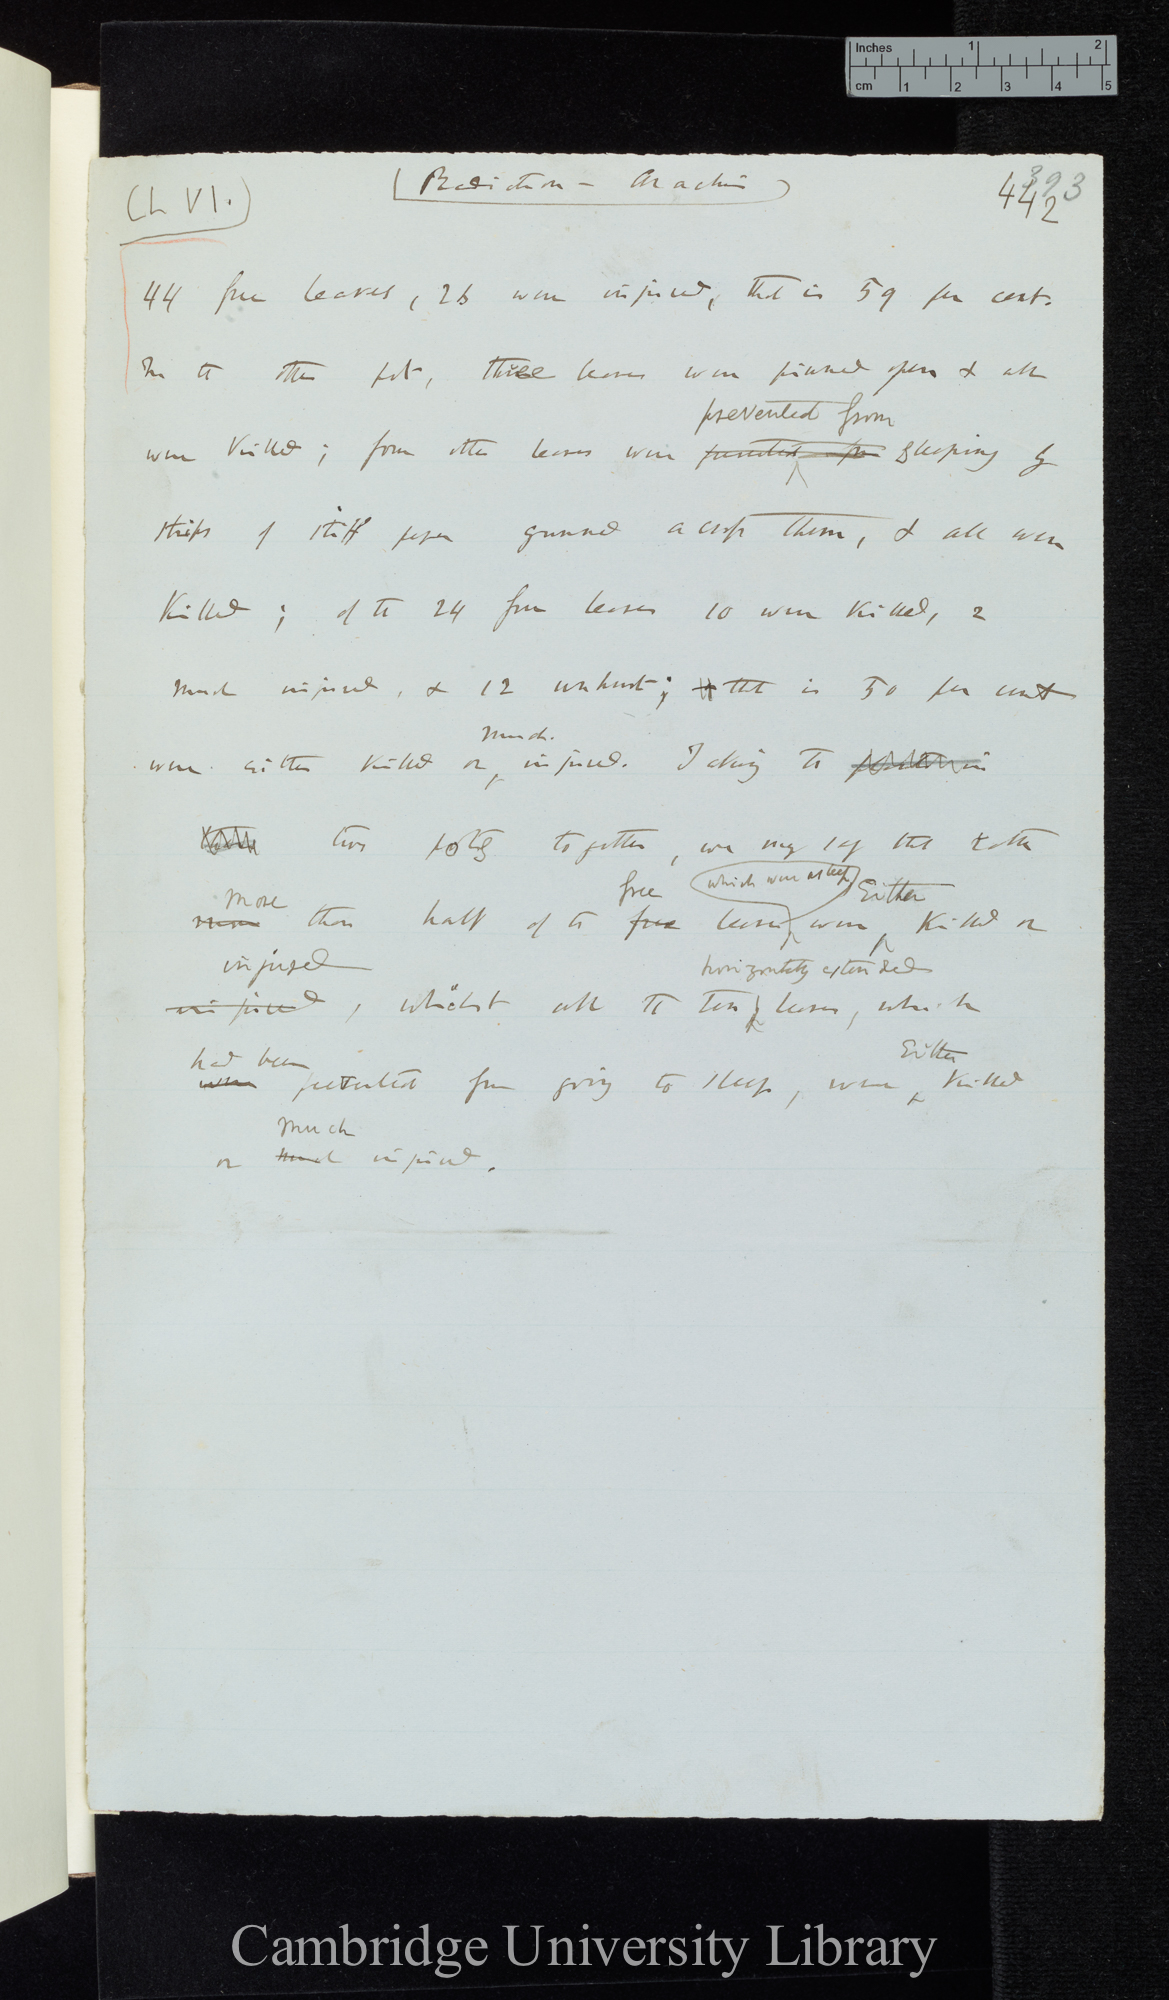 Inches 1 2
cm 1 2 3 4 5
(Ch VI.)
(Radiation – Arachis)
393
442
44 free leaves, 26 were injured, that is 59 per cent.
In the other pot, three leaves were pinned open & all
prevented from
were killed; four other leaves were prevented from sleeping by
strips of stiff paper gummed across them, & all were
killed; of the 24 free leaves 10 were killed, 2
much injured, & 12 unhurt; that is 50 per cent
much
were either killed or injured. Taking the
two pots together, we may say that rather
more free which were asleep Either
more than half of the free leaves were killed or
injured horizontally extended
injured, whilst all the ten leaves, which
had been Either
were prevented from going to sleep, were killed
much
or much injured.
Cambridge University Library